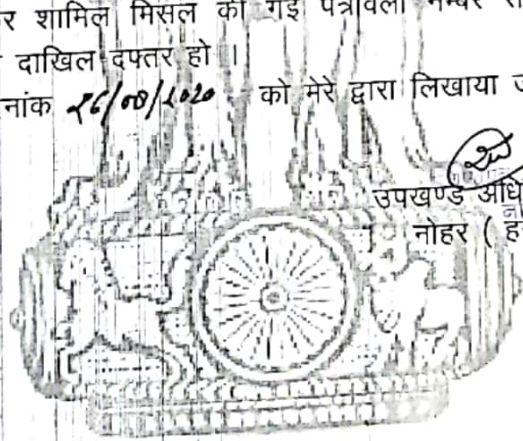 र शामिल मिसल की गई पत्रावली नम्बर
दाखिल दफ्तर हो ।
नांक 26/08/2020 को मेरे द्वारा लिखाया
उपखण्ड अधि
नोहर ( ह